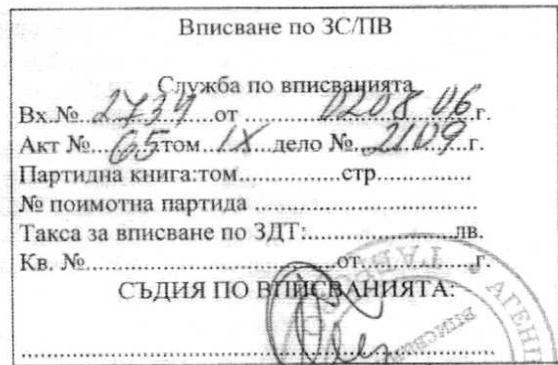 Вписване по ЗС/ПВ
Служба по вписванията
Вх.№ 2739 от 02 08 06 г.
Акт № 65 том IX дело № 2109 г.
Партидна книга:том..............стр...............
№ поимотна партида ..................................
Такса за вписване по ЗДТ:........................лв.
Кв. №.......................................от..................г.
СЪДИЯ ПО ВПИСВАНИЯТА: